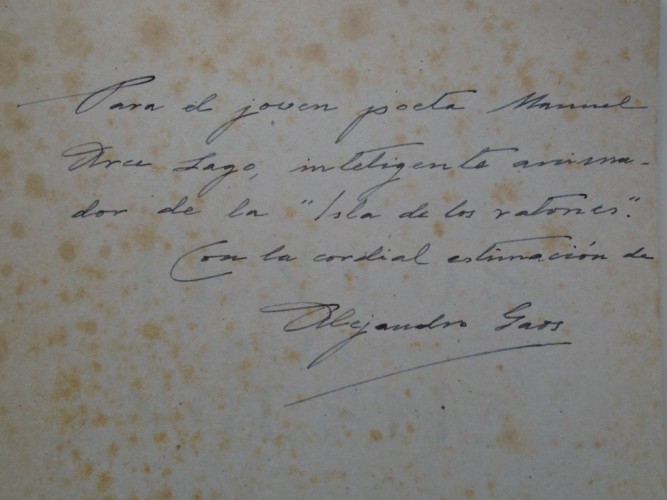 Para el joven poeta Manuel
Arce Lago, inteligente anima-
dor de la "Isla de los ratones".
Con la cordial estimación de
Alejandro Gaos